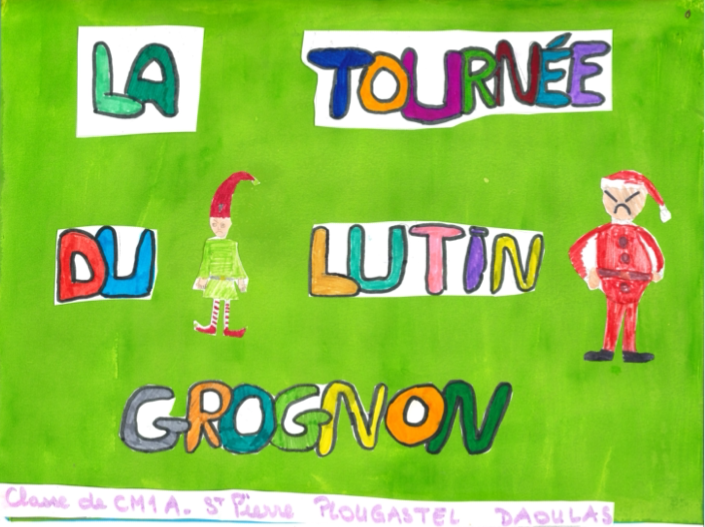 LA TOURNÉE
DU LUTIN
GROGNON
Classe de CM1 A. St Pierre PLOUGASTEL DAOULAS